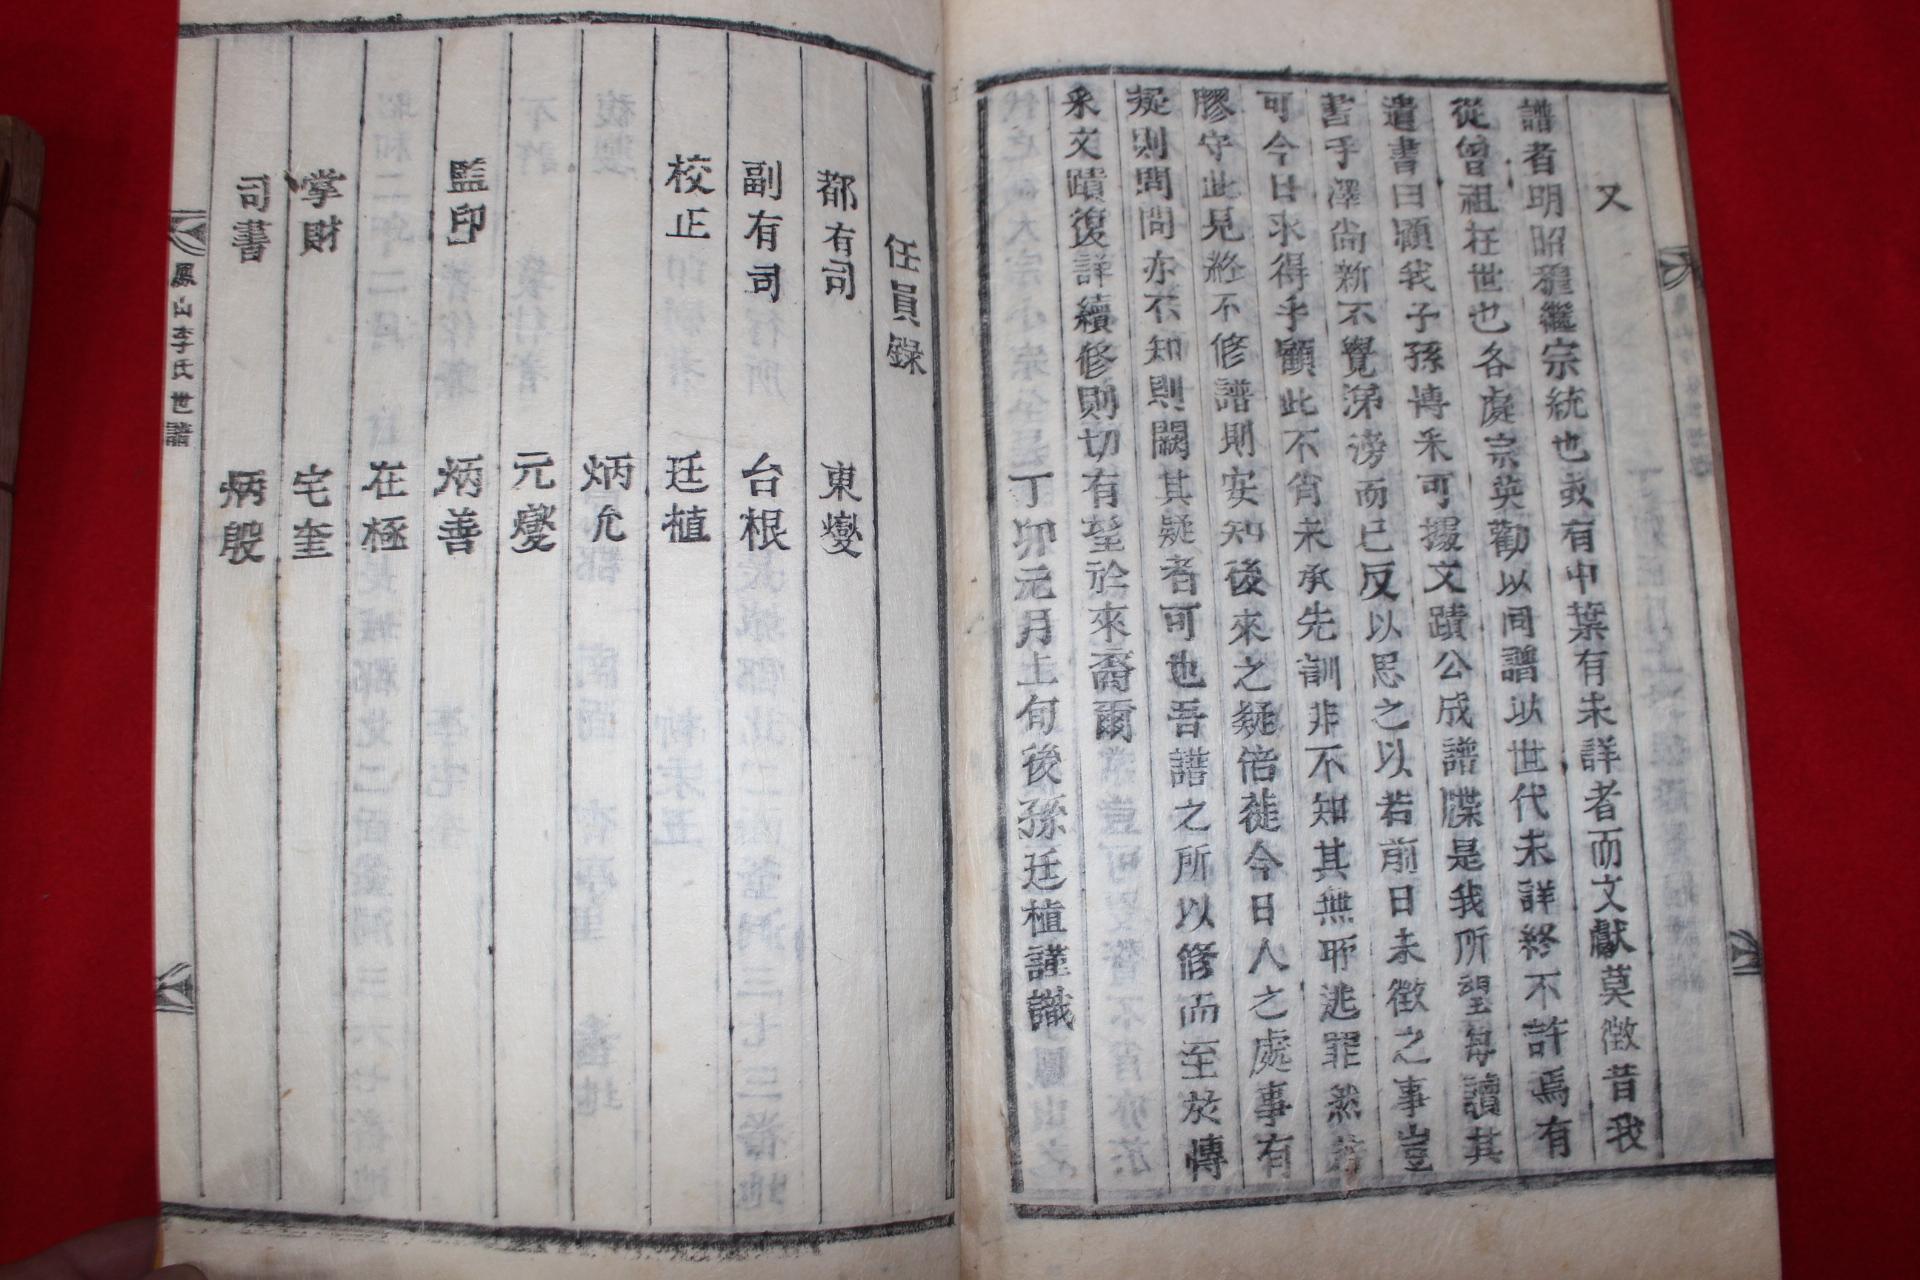 又
譜者明昭穆繼宗統也或有中葉有未詳者而文獻莫徵昔我
從曾祖在世也各處宗英勸以同譜以世代未詳終不許焉有
遺書曰願我子孫博采可掇文蹟公成譜牒是我所望每讀其
書手澤尙新不覺涕滂而已反以思之以若前日未徵之事豈
可今日求得乎顧此不肖未承先訓非不知其無所逃罪然若
膠守此見終不修譜則安知後來之疑倍蓰今日人之處事有
疑則問問亦不知則闕其疑者可也吾譜之所以修而至於博
采文蹟復詳續修則切有望於來裔爾
丁卯元月上旬後孫廷植謹識
任員錄
都有司 東燮
副有司 台根
校正 廷植
炳允
元燮
監印 炳善
在極
掌財 宅奎
司書 炳殷
鳳山李氏世譜